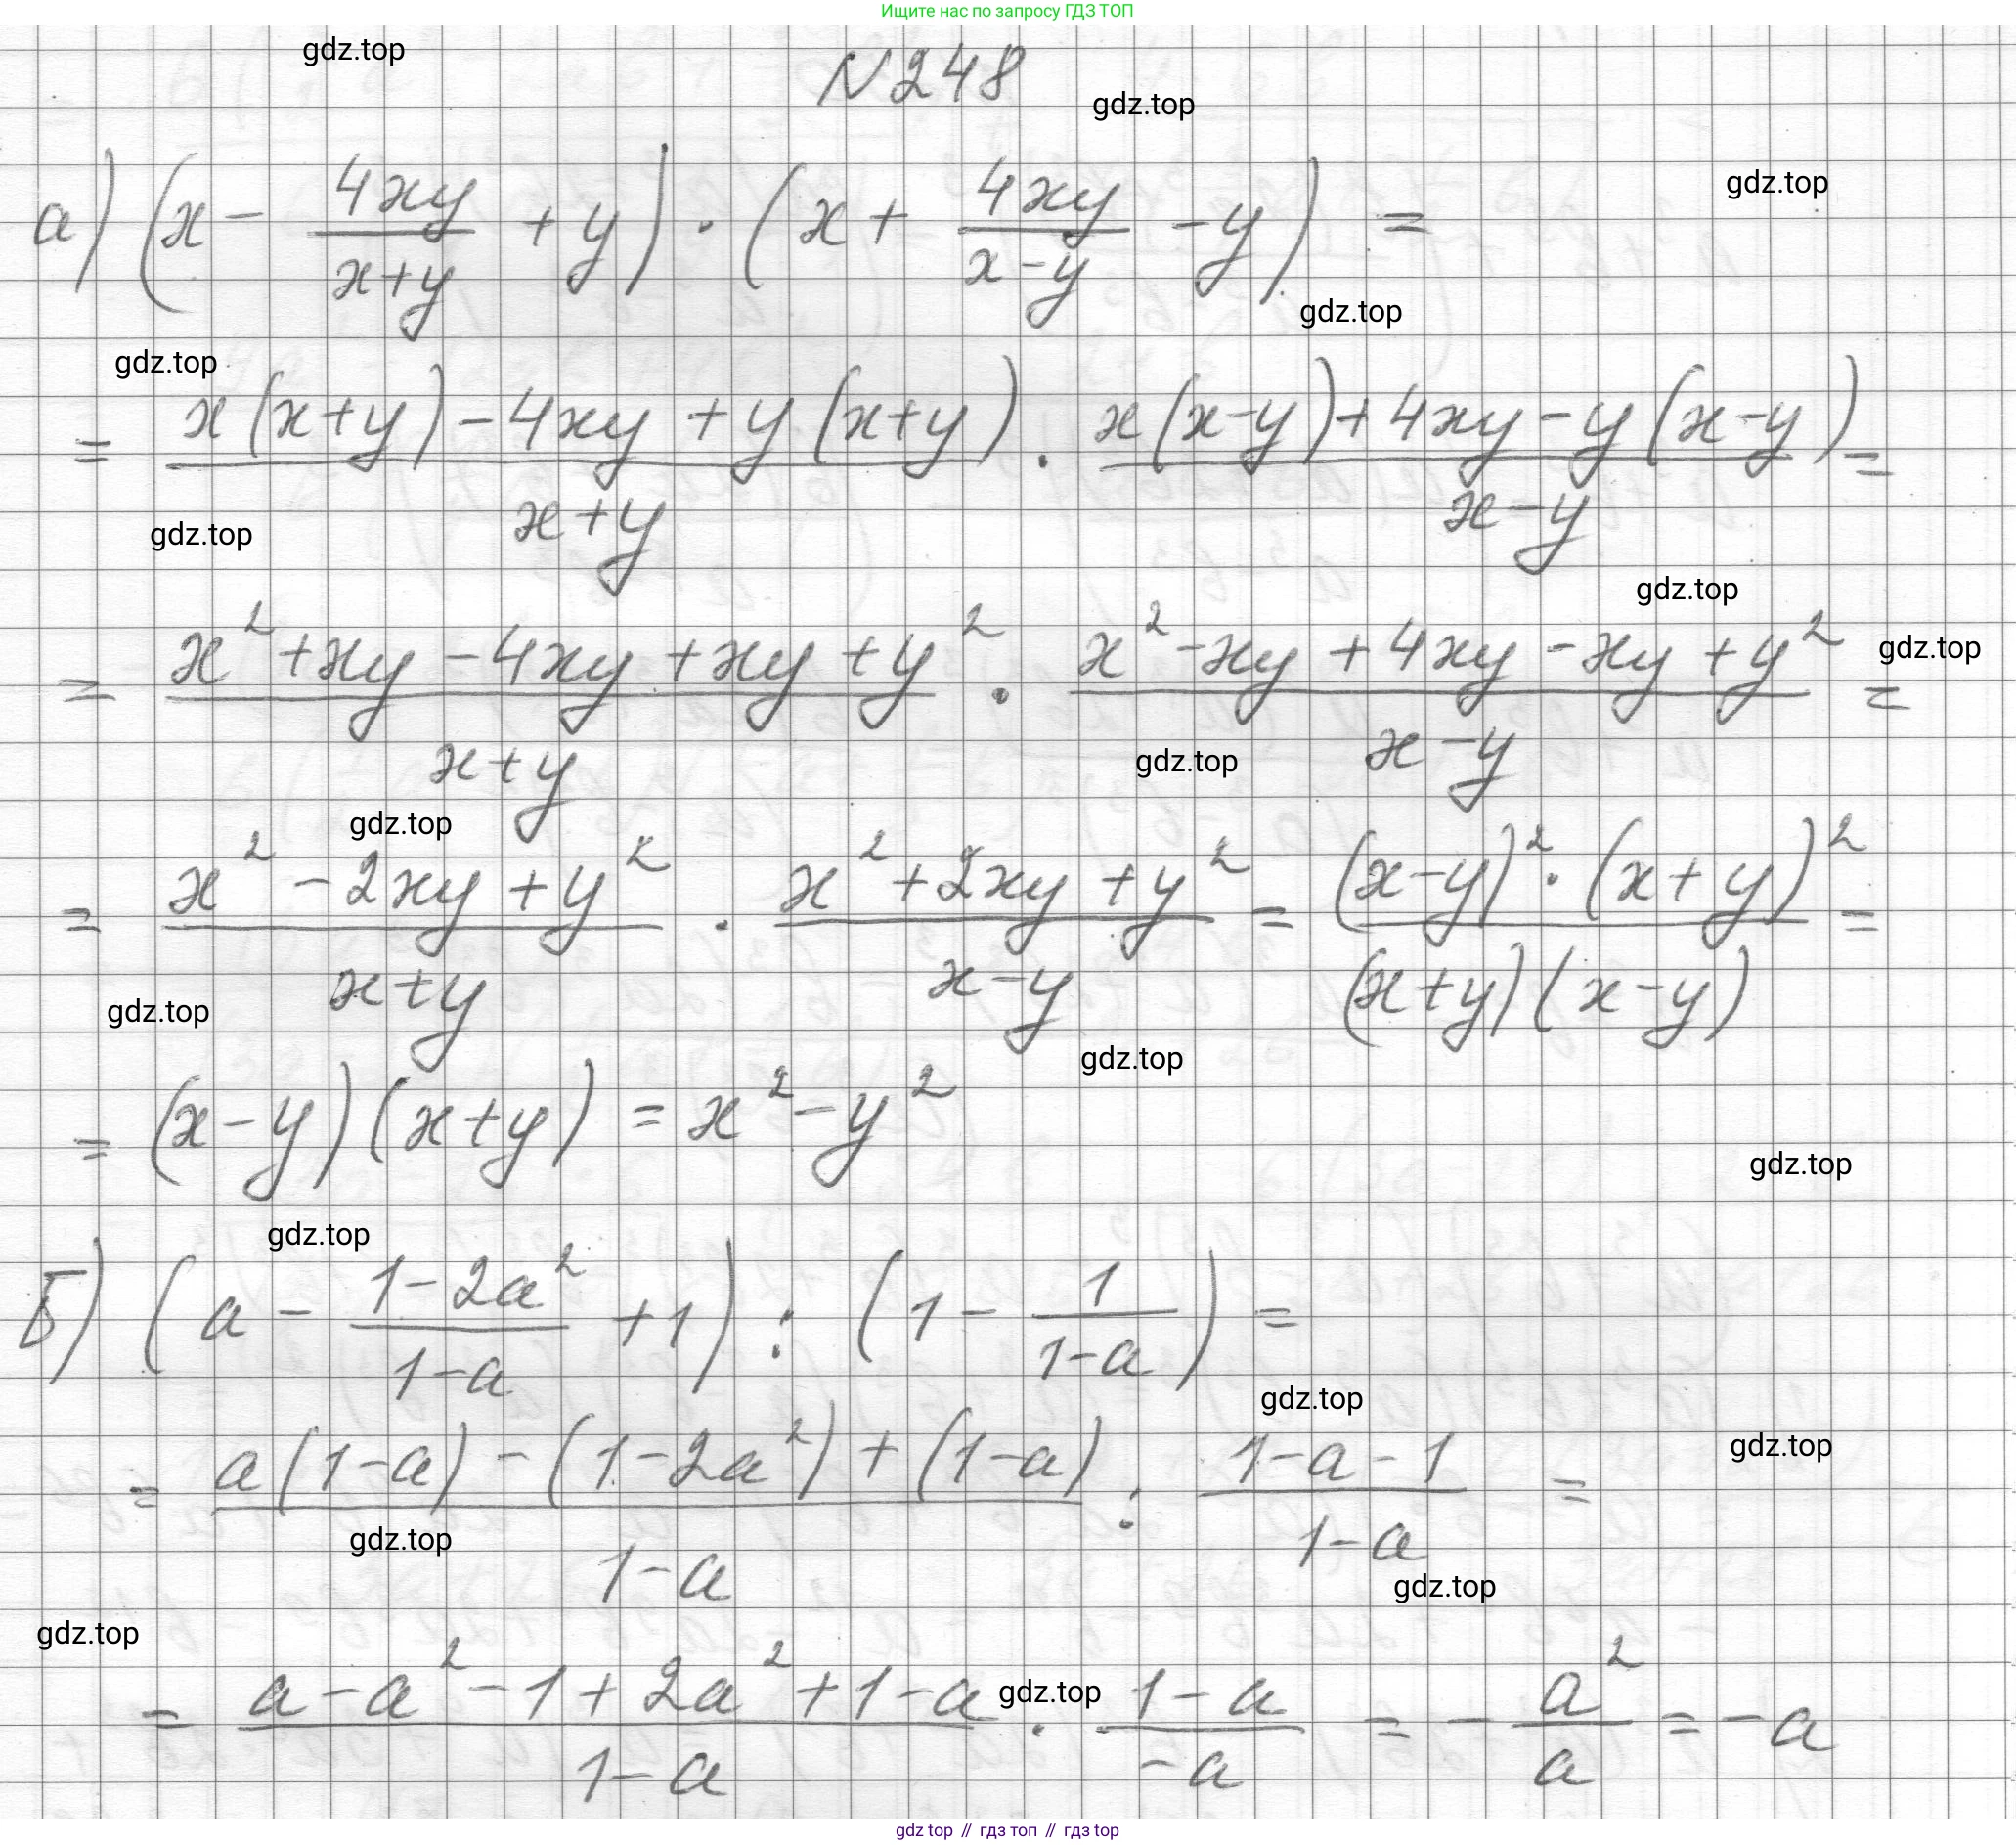 Ищите нас по запросу ГДЗ ТОП
gdz.top
N 248
gdz.top
gdz.top
а) (x - 4xy/(x+y) + y) · (x + 4xy/(x-y) - y) =
gdz.top
gdz.top
= (x(x+y) - 4xy + y(x+y))/(x+y) · (x(x-y) + 4xy - y(x-y))/(x-y) =
gdz.top
gdz.top
= (x² + xy - 4xy + xy + y²)/(x+y) · (x² - xy + 4xy - xy + y²)/(x-y) =
gdz.top
gdz.top
gdz.top
= (x² - 2xy + y²)/(x+y) · (x² + 2xy + y²)/(x-y) = ((x-y)² · (x+y)²)/((x+y)(x-y)) =
gdz.top
gdz.top
= (x-y)(x+y) = x² - y²
gdz.top
gdz.top
Б) (a - (1-2a²)/(1-a) + 1) : (1 - 1/(1-a)) =
gdz.top
gdz.top
= (a(1-a) - (1-2a²) + (1-a))/(1-a) : (1-a-1)/(1-a) =
gdz.top
gdz.top
gdz.top
= (a - a² - 1 + 2a² + 1 - a)/(1-a) · (1-a)/(-a) = - a²/a = -a
gdz.top
gdz top // гдз топ // гдз top